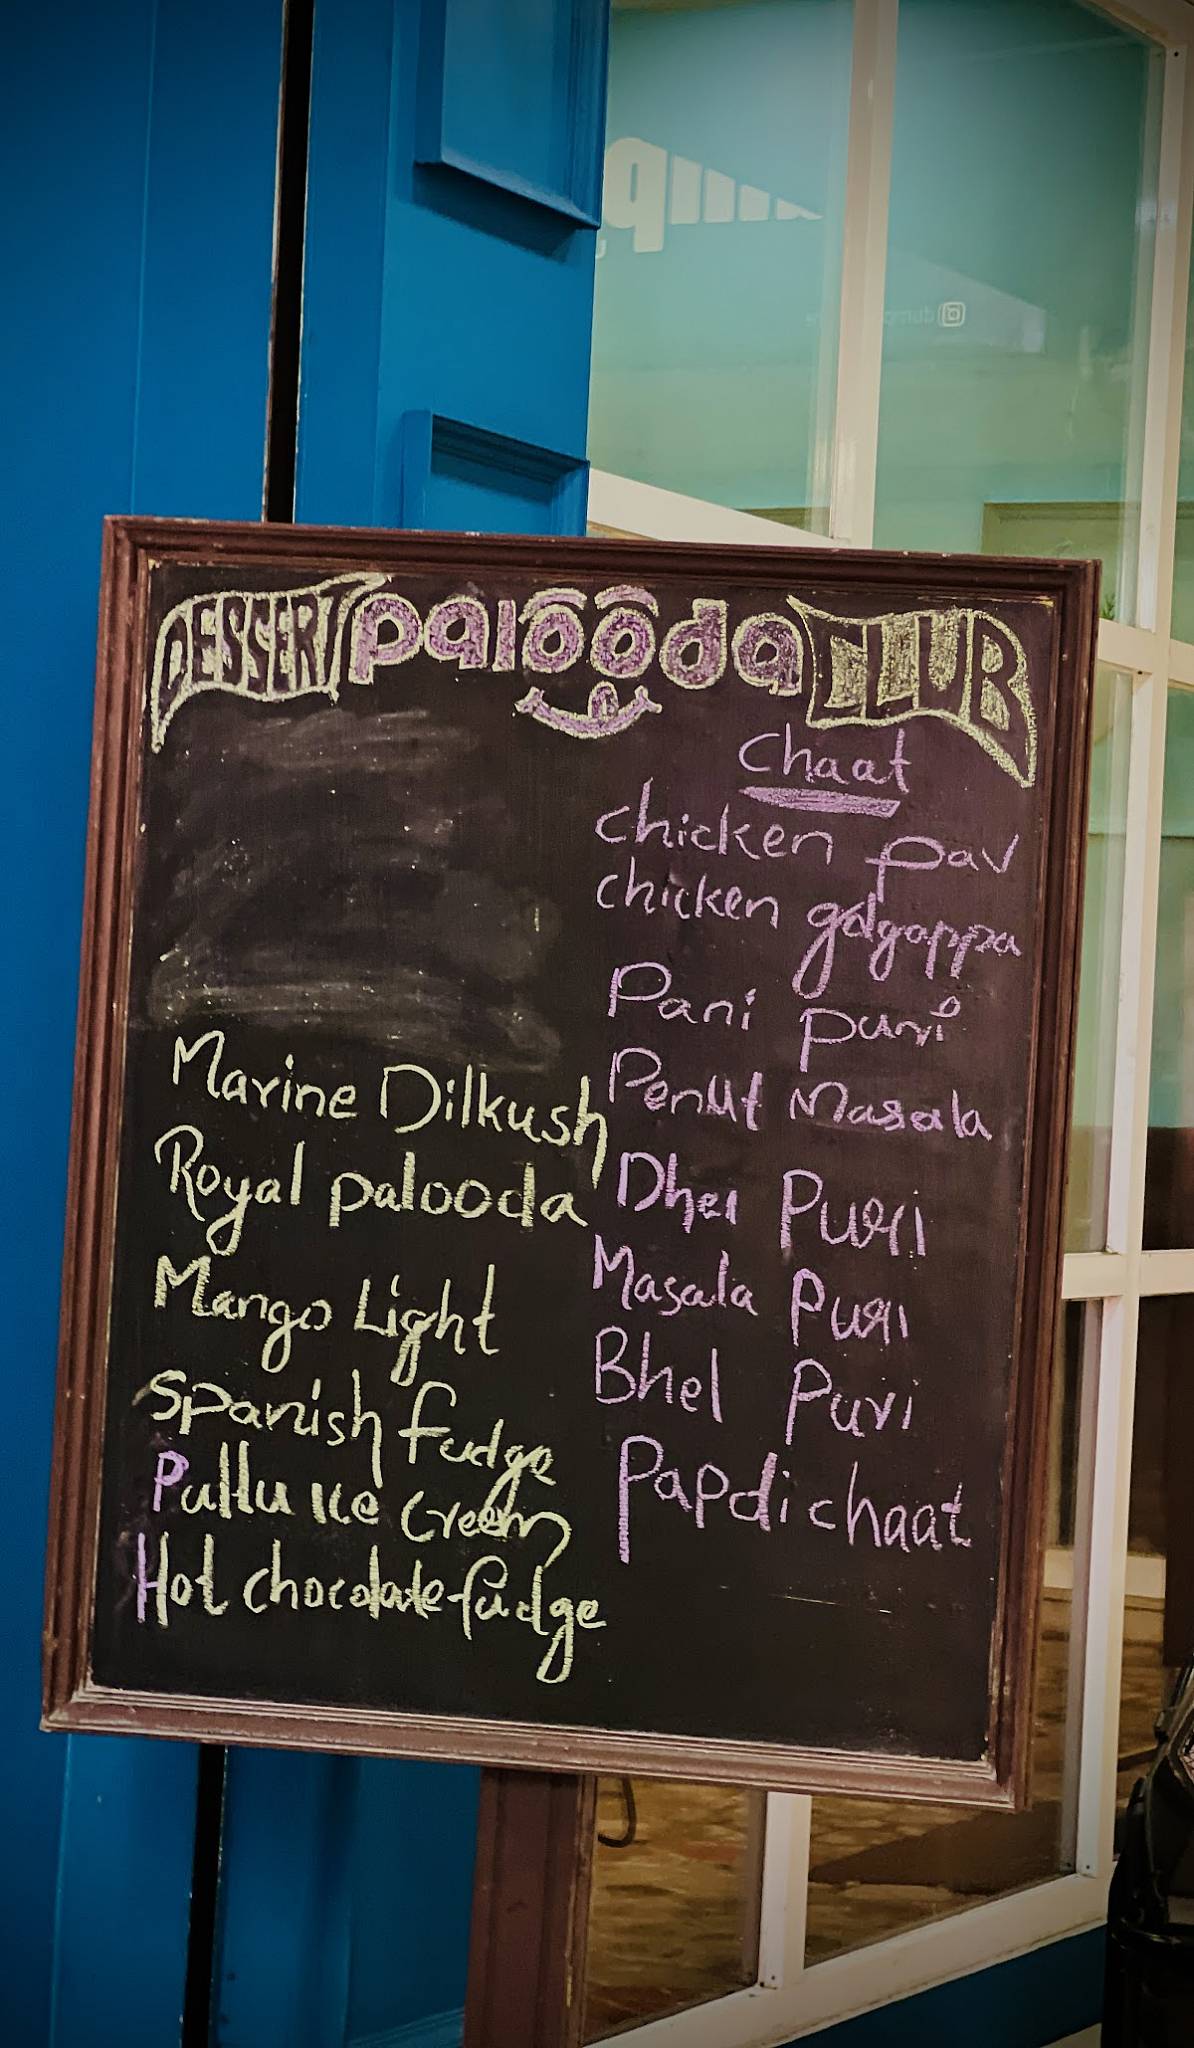 DESSERT palooda CLUB
Marine Dilkush
Royal palooda
Mango Light
Spanish fudge
Puttu Ice Creem
Hot chocolate fudge
Chaat
chicken pav
chicken golgappa
Pani puri
Penut Masala
Dhei Puri
Masala Puri
Bhel Puri
Papdi chaat